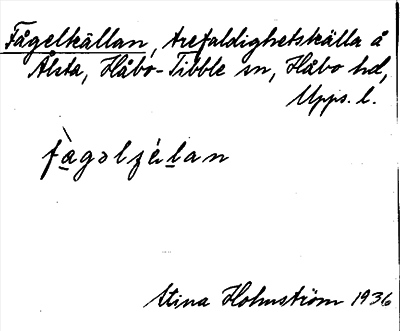 Fågelkällan, trefaldighetskälla å
Ålsta, Håbo-Tibble sn, Håbo hd,
Upps. l.
fàgəlɟélan
Stina Holmström 1936